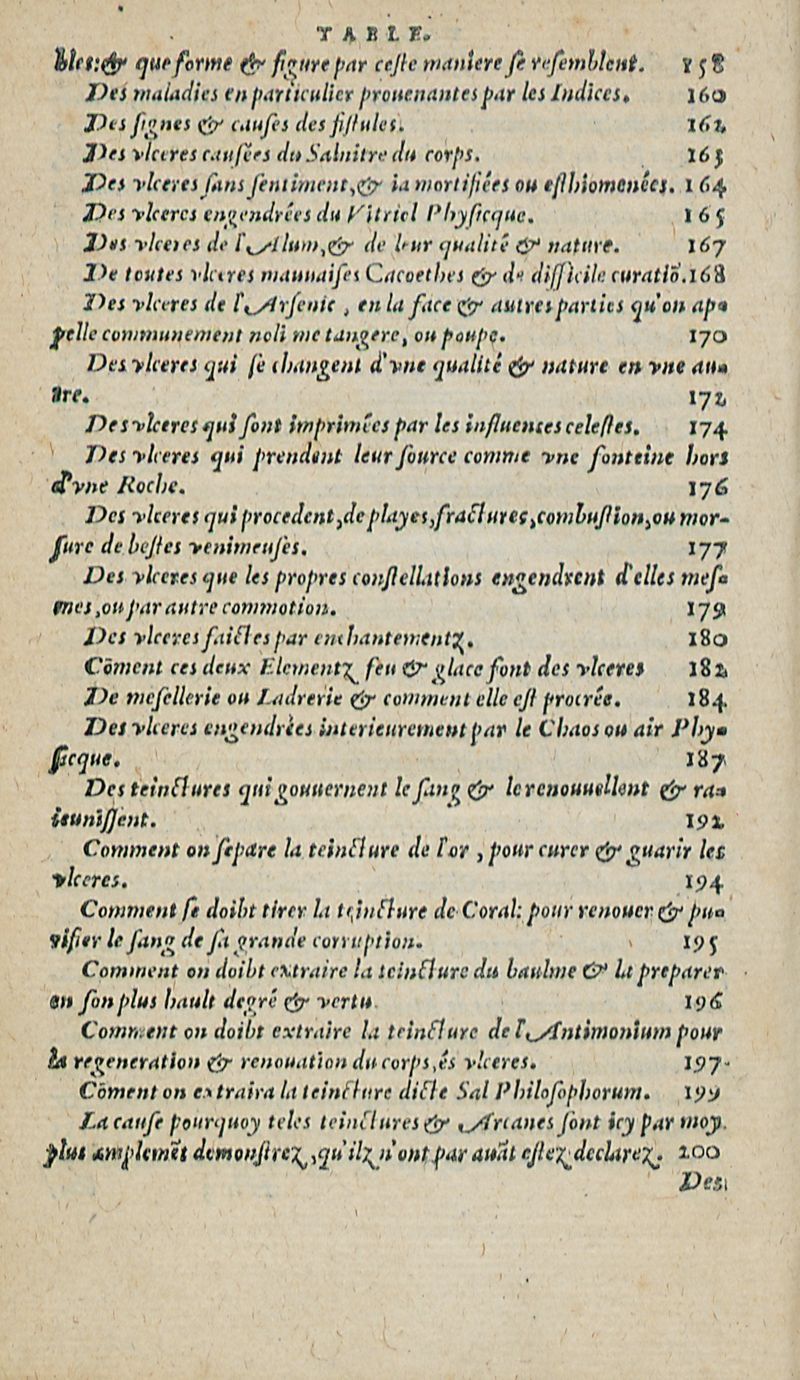 TABLE.
bles:& que forme & figure par ceste maniere se resemblent. 158
Des maladies en particulier prouenantes par les Indices. 160
Des signes & causes des fistules. 162
Des vlceres causées du Salnitre du corps. 163
Des vlceres sans sentiment,& ia mortifiées ou esthiomenées. 164
Des vlceres engendrées du Vitriol Physicque. 165
Des vlceres de l'Alum,& de leur qualité & nature. 167
De toutes vlceres mauuaises Cacoethes & de difficile curatiõ. 168
Des vlceres de l'Arsenic, en la face & autres parties qu'on ap-
pelle communement noli me tangere, ou poupe. 170
Des vlceres qui se changent d'vne qualité & nature en vne au-
tre. 172
Des vlceres qui sont imprimées par les influences celestes. 174
Des vlceres qui prendent leur source comme vne fonteine hors
d'vne Roche. 176
Des vlceres qui procedent,de playes,fractures,combustion,ou mor-
sure de bestes venimeuses. 177
Des vlceres que les propres constellations engendrent d'elles mes-
mes,ou par autre commotion. 179
Des vlceres faictes par enchantementz. 180
Cõment ces deux Elementz feu & glace font des vlceres 182
De mesellerie ou Ladrerie & comment elle est procrée. 184
Des vlceres engendrées interieurement par le Chaos ou air Phy-
sicque. 187
Des teinctures qui gouuernent le sang & le renouuellent & ra-
ieunissent. 192
Comment on separe la teincture de l'or, pour curer & guarir les
vlceres. 194
Comment se doibt tirer la teincture de Coral: pour renouer & pu-
rifier le sang de sa grande corruption. 195
Comment on doibt extraire la teincture du baulme & la preparer
en son plus hault degré & vertu. 196
Comment on doibt extraire la teincture de l'Antimonium pour
la regeneration & renouation du corps,és vlceres. 197
Cõment on extraira la teincture dicte Sal Philosophorum. 199
La cause pourquoy teles teinctures & Arcanes sont icy par moy
plus amplemẽt demonstrez,qu'ilz n'ont par auãt estez declarez. 200
Des